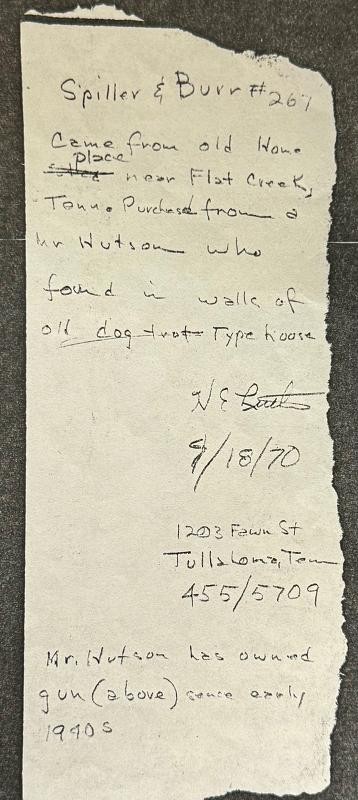 Spiller & Burr #267
Came from old Home
place
near Flat Creek,
Tenn. Purchased from a
Mr Hutson who
found in walls of
old dog trot Type house
H E
9/18/70
1203 Fawn St
Tullahoma, Tenn
455/5709
Mr. Hutson has owned
gun (above) sence early
1940s